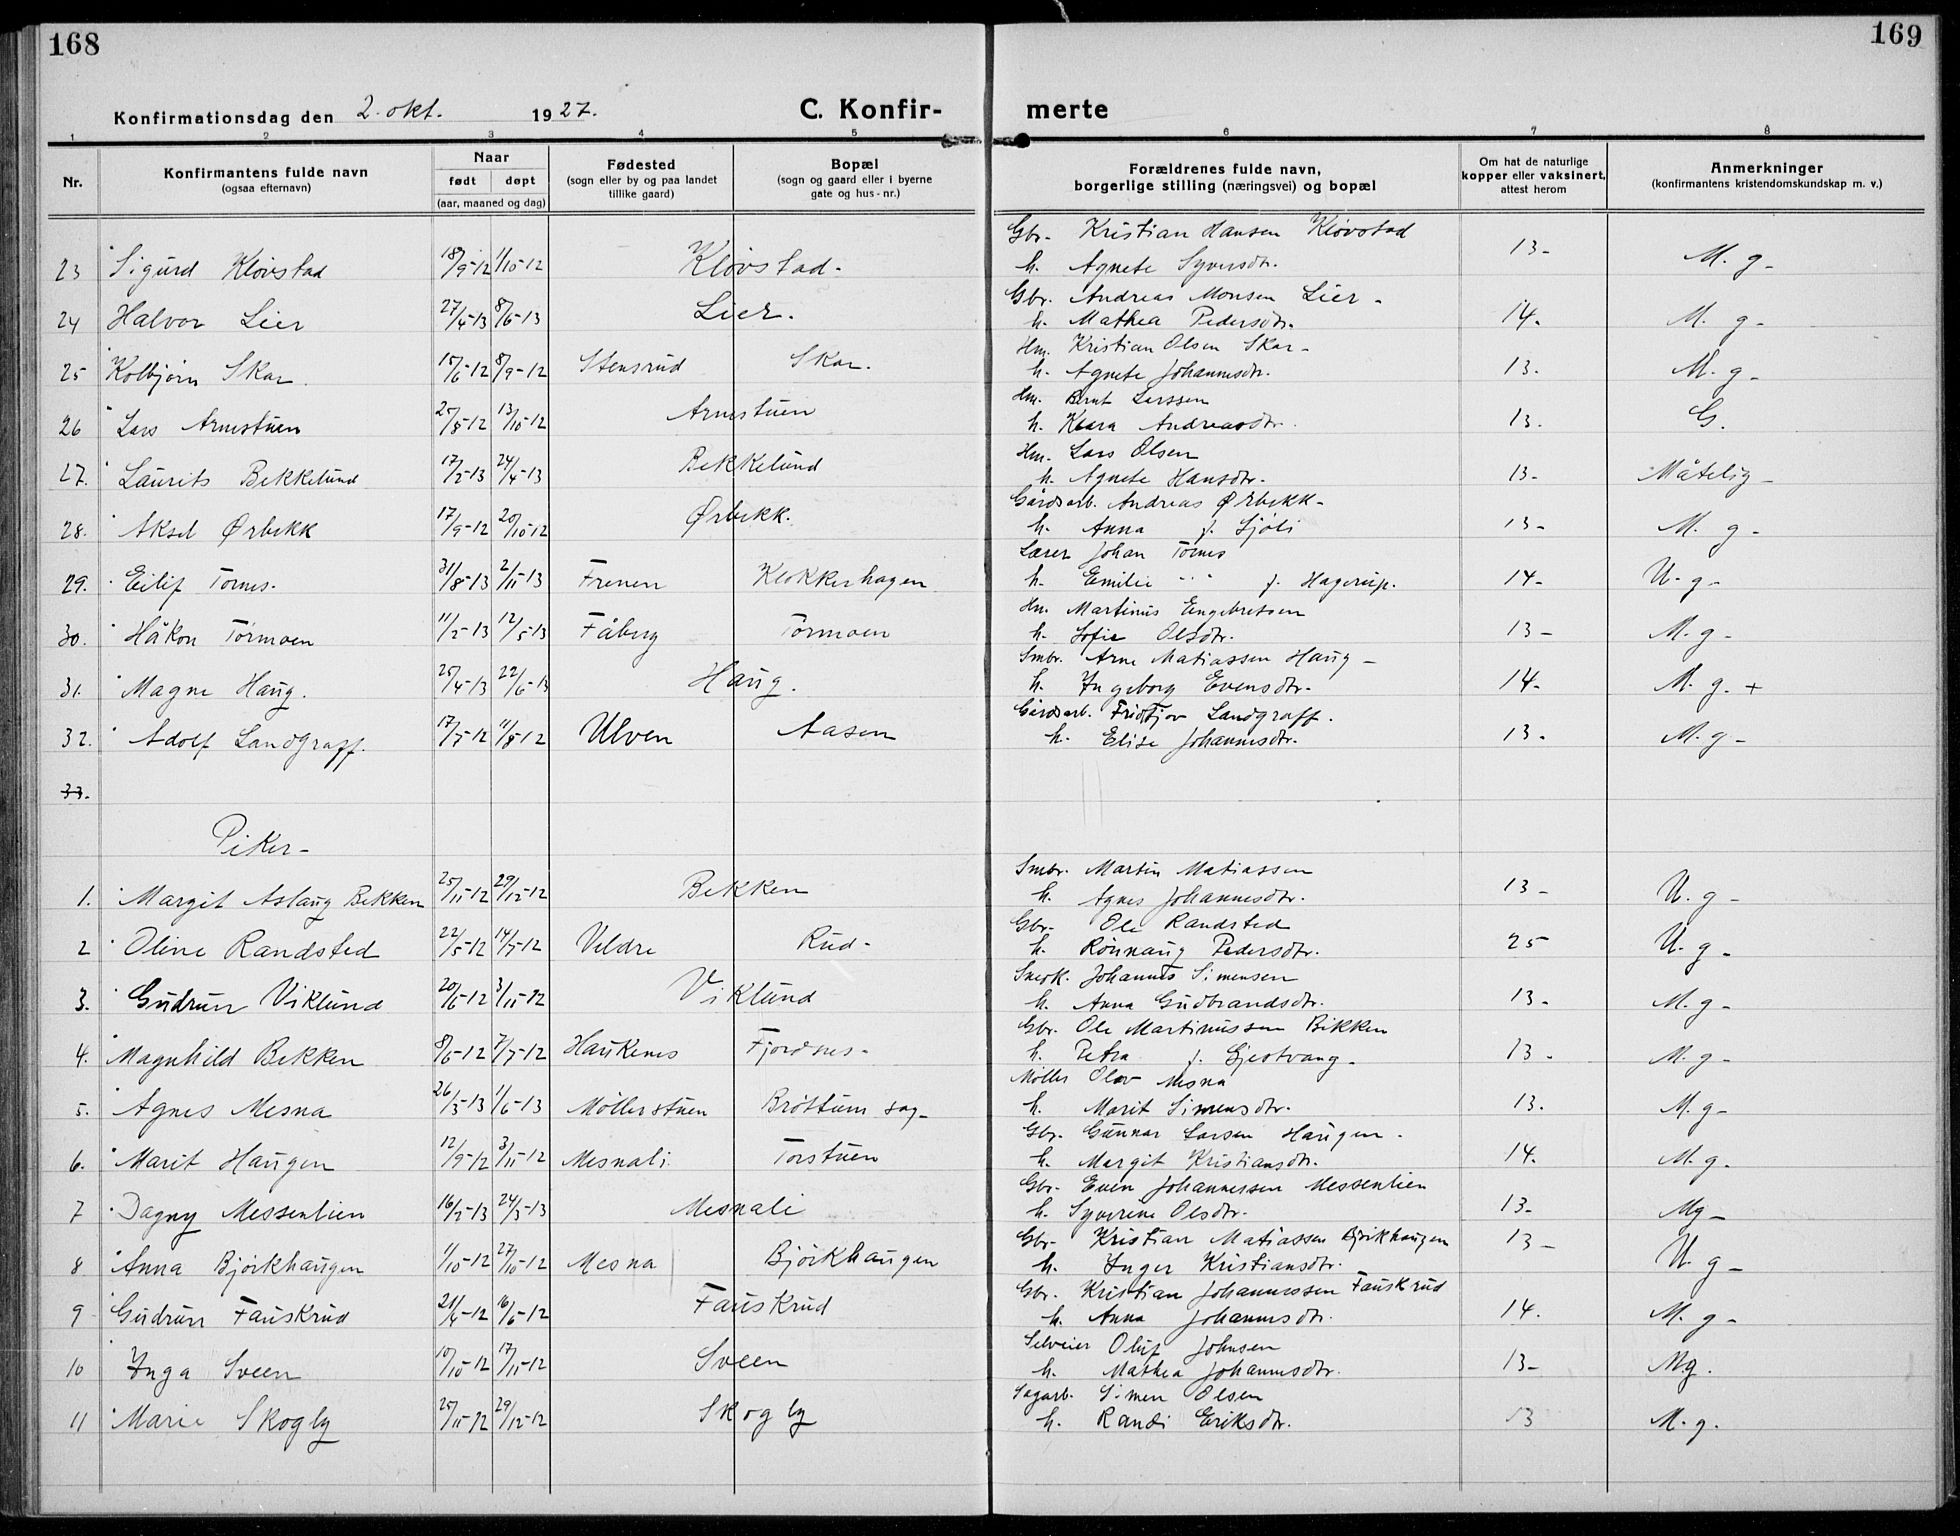 168
169
Konfirmationsdag den 2. okt. 1927. C. Konfirmerte
1 2 3 4 5 6 7 8
Nr. Konfirmantens fulde navn (ogsaa efternavn) Naar født døpt (aar, maaned og dag) Fødested (sogn eller by og paa landet tillike gaard) Bopæl (sogn og gaard eller i byerne gate og hus-nr.) Forældrenes fulde navn, borgerlige stilling (næringsvei) og bopæl Om hat de naturlige kopper eller vaksinert, attest herom Anmerkninger (konfirmantens kristendomskundskap m. v.)
Gbr. Kristian Hansen Kløvstad
23 Sigurd Kløvstad 18/9-12 1/10-12 Kløvstad. h. Agnete Syversdtr. 13- M. g-
Gbr. Andreas Monsen Lier-
24 Halvor Lier 27/4-13 8/6-13 Lier. h. Mathea Pedersdtr. 14. M. g-
Hm. Kristian Olsen Skar-
25 Kolbjørn Skar. 15/6-12 8/9-12 Stensrud Skar. h. Agnete Johannesdtr. 13. M. g-
Hm. Bernt Larssen
26 Lars Arnestuen 25/8-12 13/10-12 Arnestuen h. Klara Andreasdtr. 13. G.
Hm. Lars Olsen
27. Laurits Bekkelund 17/2-13 24/4-13 Bekkelund h. Agnete Hansdtr. 13- Måtelig-
Gårdsarb. Andreas Ørbekk-
28. Aksel Ørbekk 17/9-12 20/10-12 Ørbekk. h. Anna f. Sjøli 13- M. g-
Lærer Johan Tornes
29. Eilif Tornes. 31/8-13 2/11-13 Frenen Klokkerhagen h. Emilie " f. Hagerup. 14- U. g-
Hm. Martinus Engebretsen
30. Håkon Tørmoen 11/2-13 12/5-13 Fåberg Tørmoen h. Sofie Olsdtr. 13- M. g-
Smbr. Arne Matiassen Haug-
31. Magne Haug. 25/4-13 22/6-13 Haug. h. Ingeborg Evensdtr. 14- M. g. +
Gårdsarb. Fridtjov Landgraff.
32. Adolf Landgraff. 17/7-12 11/8-12 Ulven Aasen h. Elise Johannesdtr. 13. M. g-
33.
Piker-
Smbr. Martin Matiassen
1. Margit Aslaug Bekken 25/11-12 29/12-12 Bekken h. Agnes Johannesdtr. 13- U. g-
Gbr. Ole Randsted
2 Oline Randsted 22/5-12 14/7-12 Veldre Rud- h. Rønnaug Pedersdtr. 25 U. g-
Snekk. Johannes Simensen
3. Gudrun Viklund 20/6-12 3/11-12 Viklund h. Anna Gudbrandsdtr. 13- M. g-
Gbr. Ole Martinussen Bekken
4. Magnhild Bekken 8/6-12 7/7-12 Haukenes Fjordnes- h. Petra f. Gjestvang- 13- M. g-
Møller Olav Mesna
5. Agnes Mesna 26/3-13 1/6-13 Møllerstuen Brøttum sag- h. Marit Simensdtr. 13. M. g-
Gbr. Gunnar Larsen Haugen.
6. Marit Haugen 12/9-12 3/11-12 Mesnali Torstuen h. Margit Kristiansdtr. 14. M. g.
Gbr. Even Johannessen Messenlien
7 Dagny Messenlien 16/2-13 24/3-13 Mesnali h. Syverine Olsdtr. 13- Mg-
Gbr. Kristian Matiassen Bjørkhaugen
8 Anna Bjørkhaugen 1/10-12 27/10-12 Mesna Bjørkhaugen h. Inger Kristiansdtr. 13- U. g-
Gbr. Kristian Johannessen Fauskrud
9 Gudrun Fauskrud 21/4-12 16/6-12 Fauskrud h. Anna Johannesdtr. 14. M. g-
Selveier Oluf Johnsen
10 Inga Sveen 10/10-12 17/11-12 Sveen h. Mathea Johannesdtr. 13- Mg.
Sagarb. Simen Olsen
11 Marie Skogly 25/11-12 29/12-12 Skogly h. Randi Eriksdtr. 13 M. g.